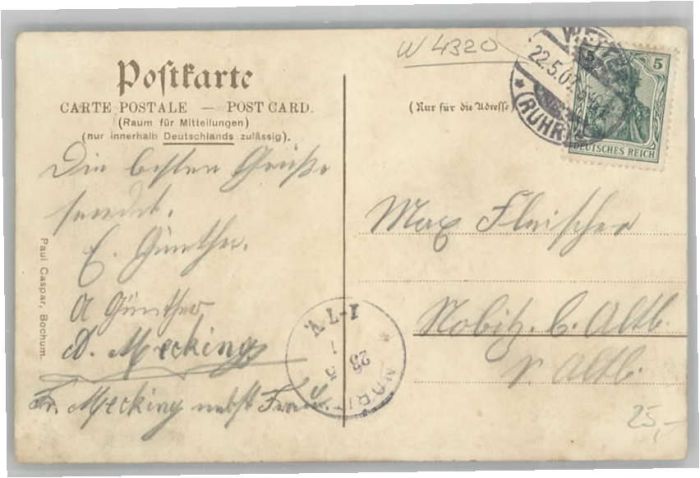 W 4320
Postkarte
CARTE POSTALE — POST CARD.
(Raum für Mitteilungen)
(nur innerhalb Deutschlands zulässig).
(Nur für die Adresse)
22.5.07
*(RUHR)
5
DEUTSCHES REICH
Die besten Grüße
sendet.
E. Günther.
A Günther
A. Mecking
Fr. Mecking nebst Frau
Paul Caspar, Bochum.
1-7 V.
Max Fleischer
Nobitz. b. Altb.
Altb.
25,-